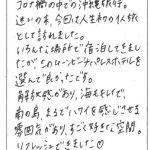 コロナ禍の中での沖縄旅行。
迷いの末、今回は人生初の1人旅
として訪れました。
いろんな場所で宿泊してきまし
たが、このムーンビーチパレスホテルを
選んで良かったです。
解放感があり、海もキレイで、
南の島、まるでハワイを感じさせる
雰囲気があり、すごく好きな空間。
リフレッシュできました○